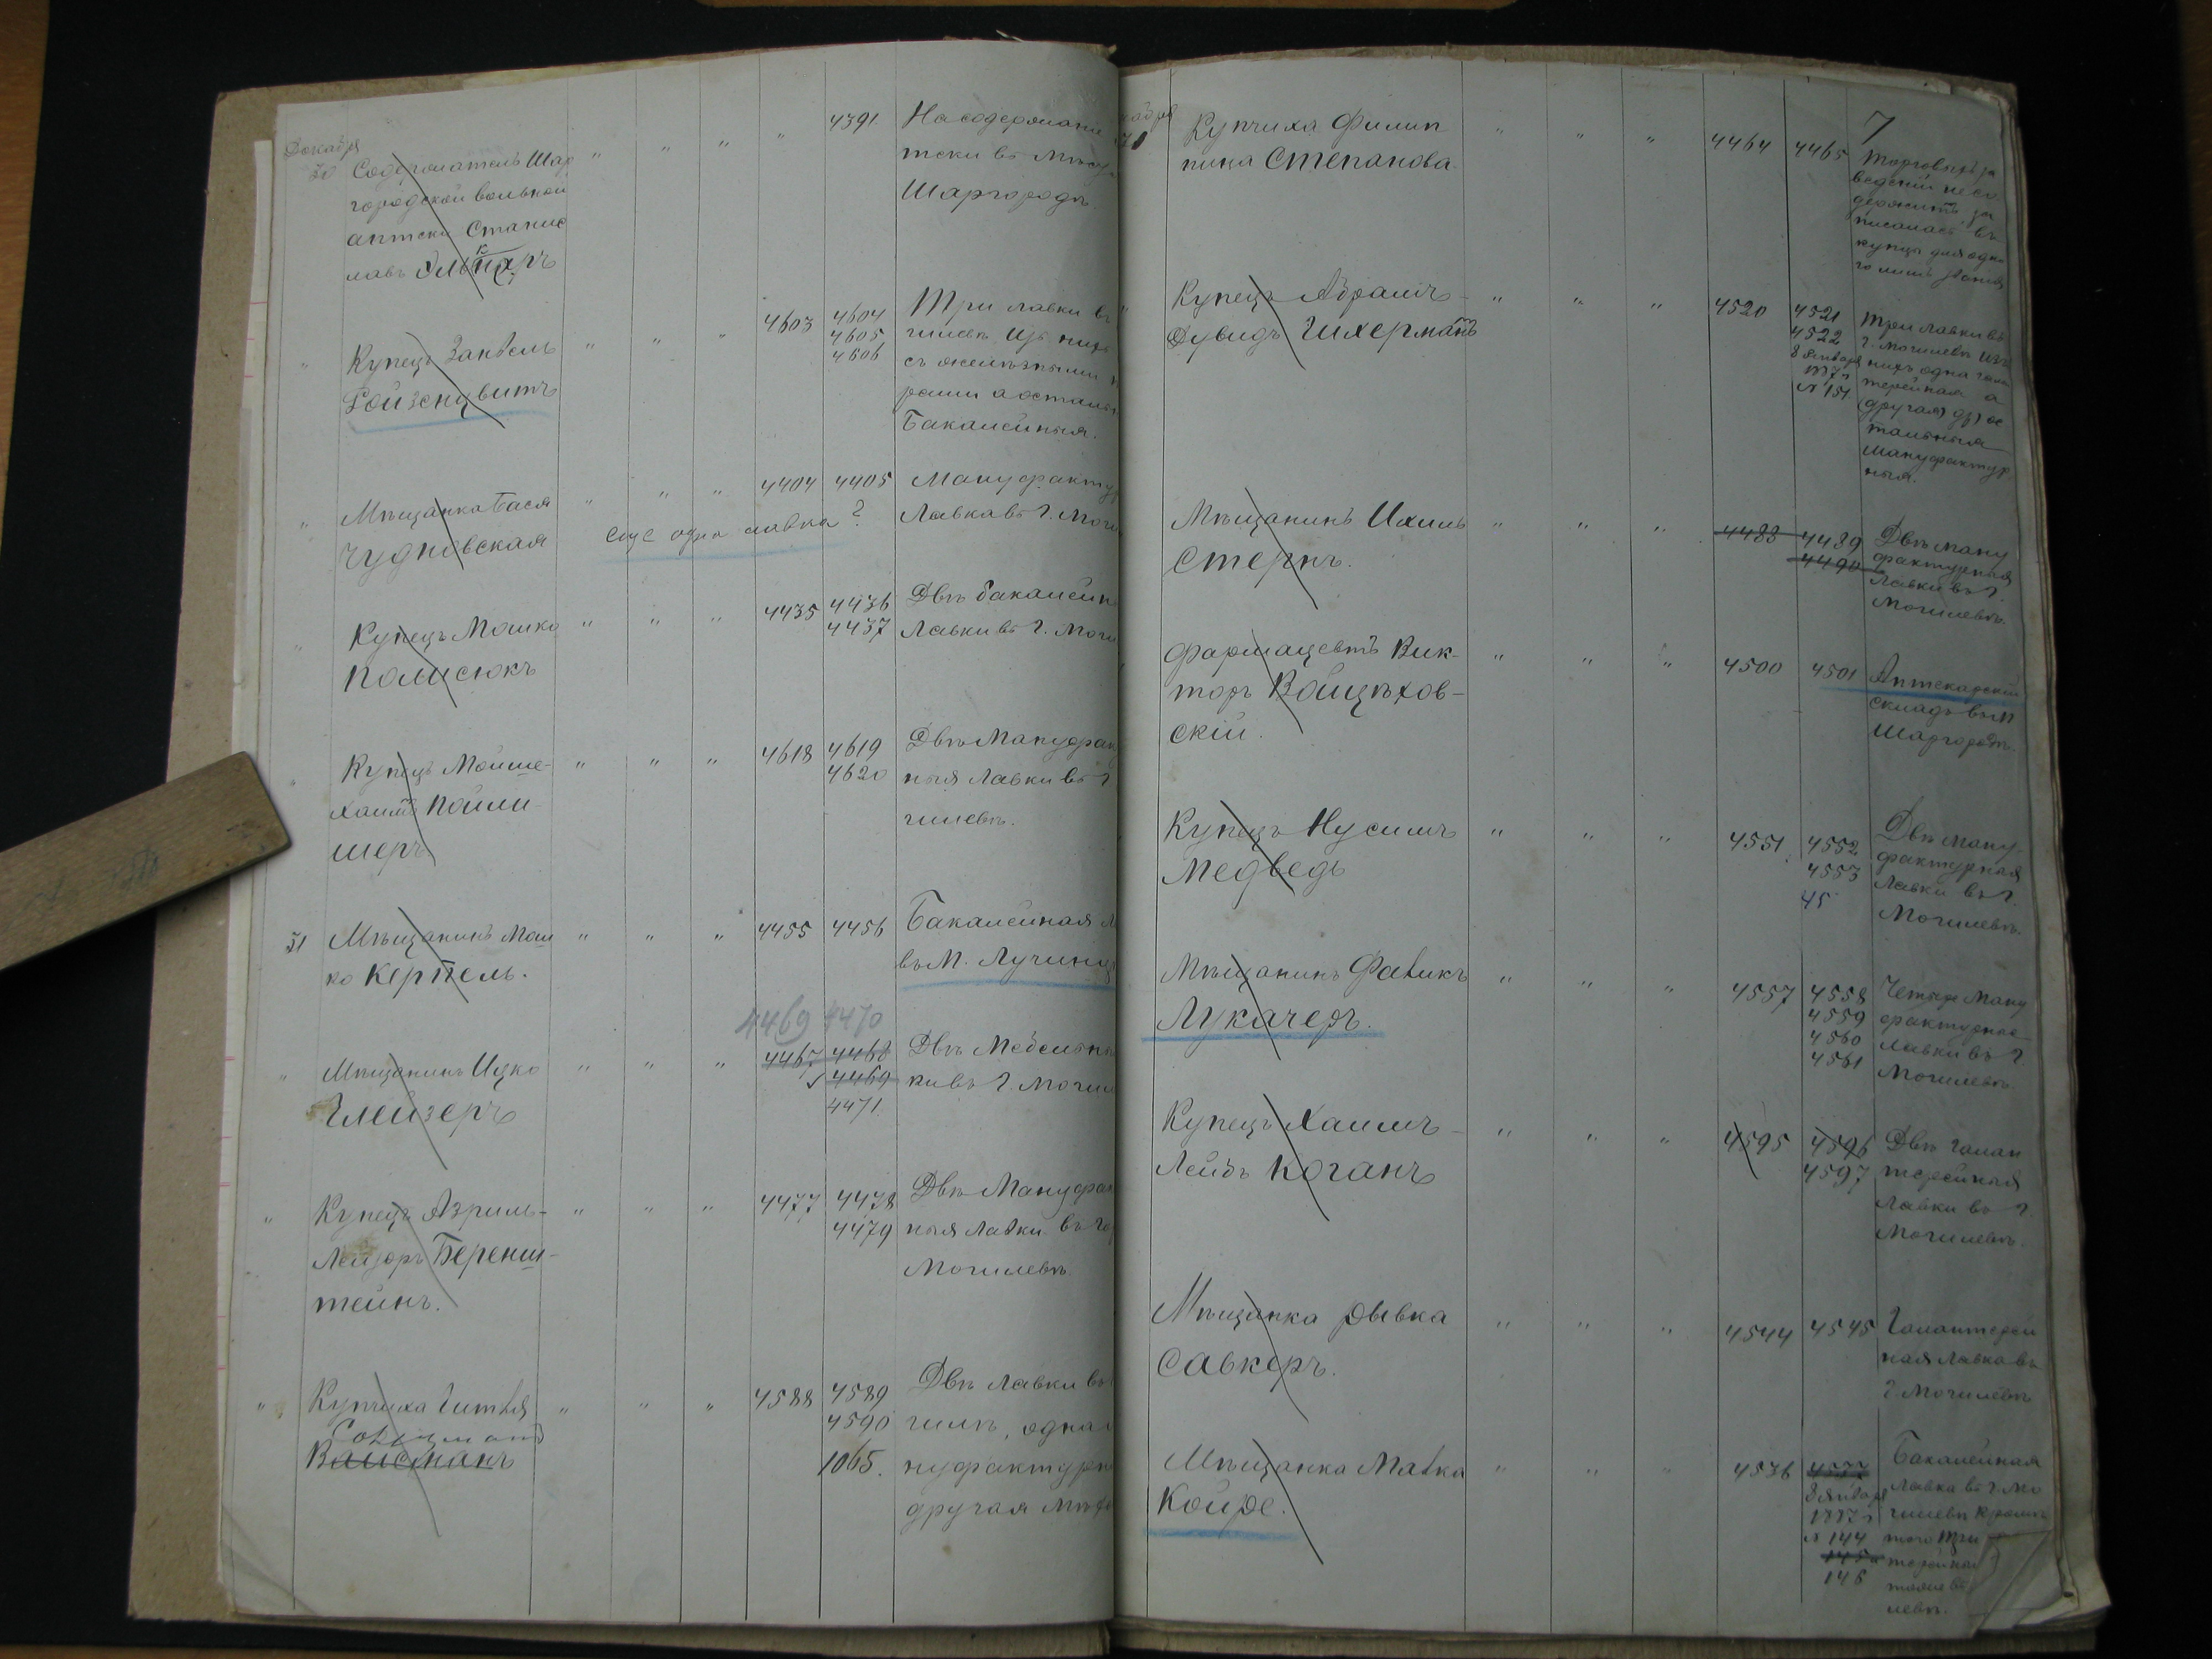 Декабря
30 Содержатель Шар
городской вольной
аптеки Станис
лавъ
" " " " 4391
На содержаніе
теки въ мѣст
Шаргородѣ.
" Купецъ Занвель
Ройзенцвитъ
" " " 4603 4604
4605
4606
Три лавки въ
гилевѣ. Изъ нихъ
съ желѣзными
рами а осталь
Бакалейныя.
" Мѣщанка Бася
Чудновская
" " " 4404 4405
еще одна лавка?
Мануфактур
Лавка въ г. Моги
" Купецъ Мошко
Полисюкъ
" " " 4435 4436
4437
Двѣ бакалейн
Лавки въ г. Моги
" Купецъ Мойше-
Хаимъ Пойли
шеръ
" " " 4618 4619
4620
Двѣ Мануфак
ныя Лавки въ г
гилевѣ.
31 Мѣщанинъ Мош
ко Керпель.
" " " 4455 4456
Бакалейная Л
въ М. Лучинц
" Мѣщанинъ Ицко
Глейзеръ
4469 4470
" " " 4467 4468
4469
4471
Двѣ Мебельны
ки въ г. Могил
" Купецъ Азриль-
Лейзоръ Беренш-
тейнъ.
" " " 4477 4478
4479
Двѣ Мануфак
ныя Лавки въ го
Могилевѣ
" Купчиха Гитля
Вайсманъ
" " " 4588 4589
4590
1065.
Двѣ Лавки въ
гилѣ, одна
нуфактурн
другая Мѣхо
7
кабря
31 Купчиха Филип
пина Степанова
" " " 4464 4465
Торговыхъ за
веденій не со
держитъ, за
писалась въ
купцы для одно
го лишь званія
" Купецъ Абрамъ-
Дувидъ Шихерманъ
" " " 4520 4521
4522
8 Января
1887 г
№ 151
Три лавки въ
г. Могилевѣ изъ
нихъ одна галан
терейная а
(другая) др) ос
тальныя
мануфактур
ныя.
Мѣщанинъ Ихиль
Стернъ.
" " " 4488 4489
4490
Двѣ ману
фактурныя
Лавки въ г.
Могилевѣ.
" Фармацевтъ Вик-
торъ Войцѣхов-
скій.
" " " 4500 4501
Аптекарскій
складъ въ м
Шаргородѣ.
Купецъ Нусимъ
Медведь
" " " 4551 4552
4553
45
Двѣ Ману-
фактурныя
Лавки въ г.
Могилевѣ.
Мѣщанинъ Фавикъ
Лукачеръ.
" " " 4557 4558
4559
4560
4561
Четыре Ману
фактурное
Лавки въ г.
Могилевѣ
Купецъ Хаимъ-
Лейбъ Коганъ
" " " 4595 4596
4597
Двѣ галан
терейныя
Лавки въ г.
Могилевѣ.
Мѣщанка Рывка
Савкеръ.
" " " 4544 4545
Галантерей
ная Лавка въ
г. Могилевѣ
Мѣщанка Малка
Койре.
" " " 4536 4537
8 Января
1887 г
№ 144
145
146
Бакалейная
Лавка въ г. Мо
гилевѣ Кромѣ
того три
левѣ.